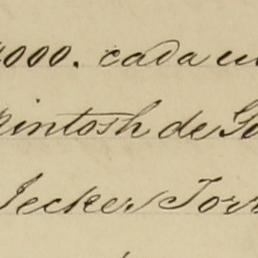 000. cada u
intosh de Go
Jecker Torr